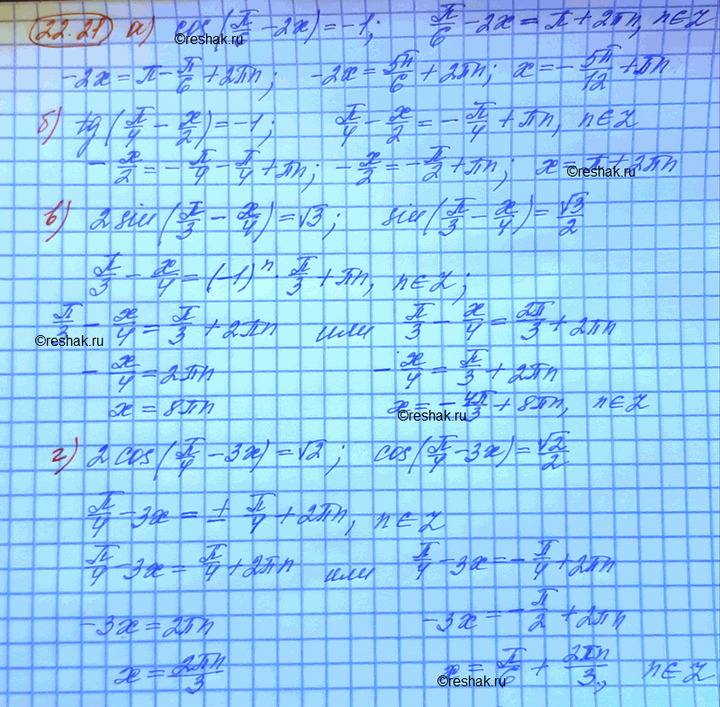 22.21 а) cos(π/6 - 2x) = -1; π/6 - 2x = π + 2πn, n∈Z
©reshak.ru
-2x = π - π/6 + 2πn; -2x = 5π/6 + 2πn; x = -5π/12 + πn
б) tg(π/4 - x/2) = -1; π/4 - x/2 = -π/4 + πn, n∈Z
-x/2 = -π/4 - π/4 + πn; -x/2 = -π/2 + πn; x = π + 2πn
©reshak.ru
в) 2 sin(π/3 - x/4) = √3; sin(π/3 - x/4) = √3/2
π/3 - x/4 = (-1)ⁿ · π/3 + πn, n∈Z;
π/3 - x/4 = π/3 + 2πn или π/3 - x/4 = 2π/3 + 2πn
©reshak.ru
-x/4 = 2πn -x/4 = π/3 + 2πn
x = 8πn x = -4π/3 + 8πn, n∈Z
©reshak.ru
г) 2 cos(π/4 - 3x) = √2; cos(π/4 - 3x) = √2/2
π/4 - 3x = ± π/4 + 2πn, n∈Z
π/4 - 3x = π/4 + 2πn или π/4 - 3x = -π/4 + 2πn
-3x = 2πn -3x = -π/2 + 2πn
x = 2πn/3 x = π/6 + 2πn/3, n∈Z
©reshak.ru